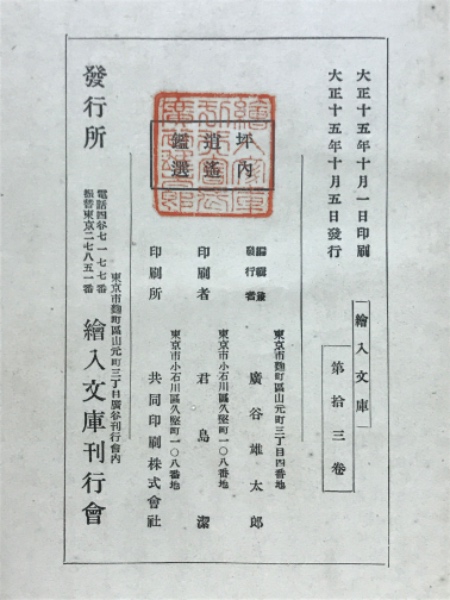 大正十五年十月一日印刷
大正十五年十月五日發行
繪入文庫
第拾三卷
坪內
逍遙
鑑選
編輯兼
發行者
東京市麴町區山元町三丁目四番地
廣谷雄太郎
印刷者
東京市小石川區久堅町一〇八番地
君島潔
印刷所
東京市小石川區久堅町一〇八番地
共同印刷株式會社
發行所
東京市麴町區山元町三丁目廣谷刊行會內
電話四谷七一七七番
振替東京二七八五一番
繪入文庫刊行會